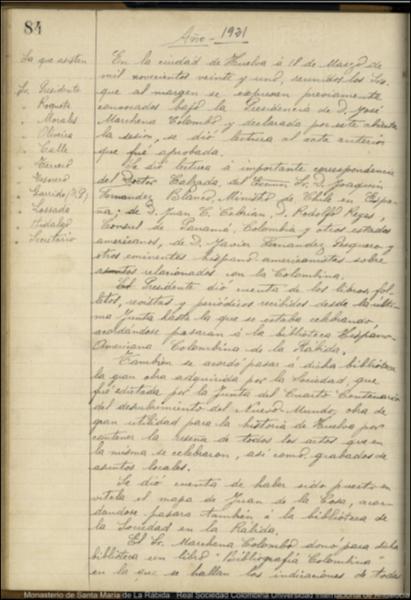 84
Año - 1921
Sres que asisten
Sr. Presidente
" Roqueta
" Morales
" Oliveira
" Calle
" Terrero
" Garrido (D. P.)
" Lossada
" Hidalgo
" Secretario
En la ciudad de Huelva á 18 de Marzo de
mil novecientos veinte y uno, reunidos los Srs.
que al margen se expresan previamente
convocados bajo la Presidencia de D. José
Marchena Colombo y declarada por este abierta
la sesión, se dió lectura al acta anterior
que fué aprobada.
Se dió lectura á importante correspondencia
del Doctor Calzada, del Excmo Sr. D. Joaquin
Fernandez Blanco, Ministro de Chile en Espa-
ña; de D. Juan C. Cebrian, D. Rodolfo Reyes,
Consul de Panamá, Colombia y otros estados
americanos, de D. Javier Fernandez Pesquero y
otros eminentes hispano-americanistas sobre
asuntos relacionados con la Colombina.
El Presidente dió cuenta de los libros, fol-
letos, revistas y periódicos recibidos desde la última
Junta hasta la que se estaba celebrando
acordándose pasaran á la biblioteca Hispano-
Americana Colombina de la Rábida.
Tambien se acordó pasar a dicha biblioteca
la gran obra adquirida por la Sociedad, que
fué editada por la Junta del Cuarto Centenario
del descubrimiento del Nuevo Mundo, obra de
gran utilidad para la historia de Huelva por
contener la reseña de todos los actos que en
la misma se celebraron, así como, grabados de
asuntos locales.
Se dió cuenta de haber sido puesto en
vitela el mapa de Juan de la Cosa, acor-
dandose pasara también á la biblioteca de
la Sociedad en la Rabida.
El Sr. Marchena Colombo donó para dicha
biblioteca un libro "Bibliografia Colombina"
en la que se hallan las indicaciones de todas
Monasterio de Santa María de La Rábida Real Sociedad Colombina Onubense